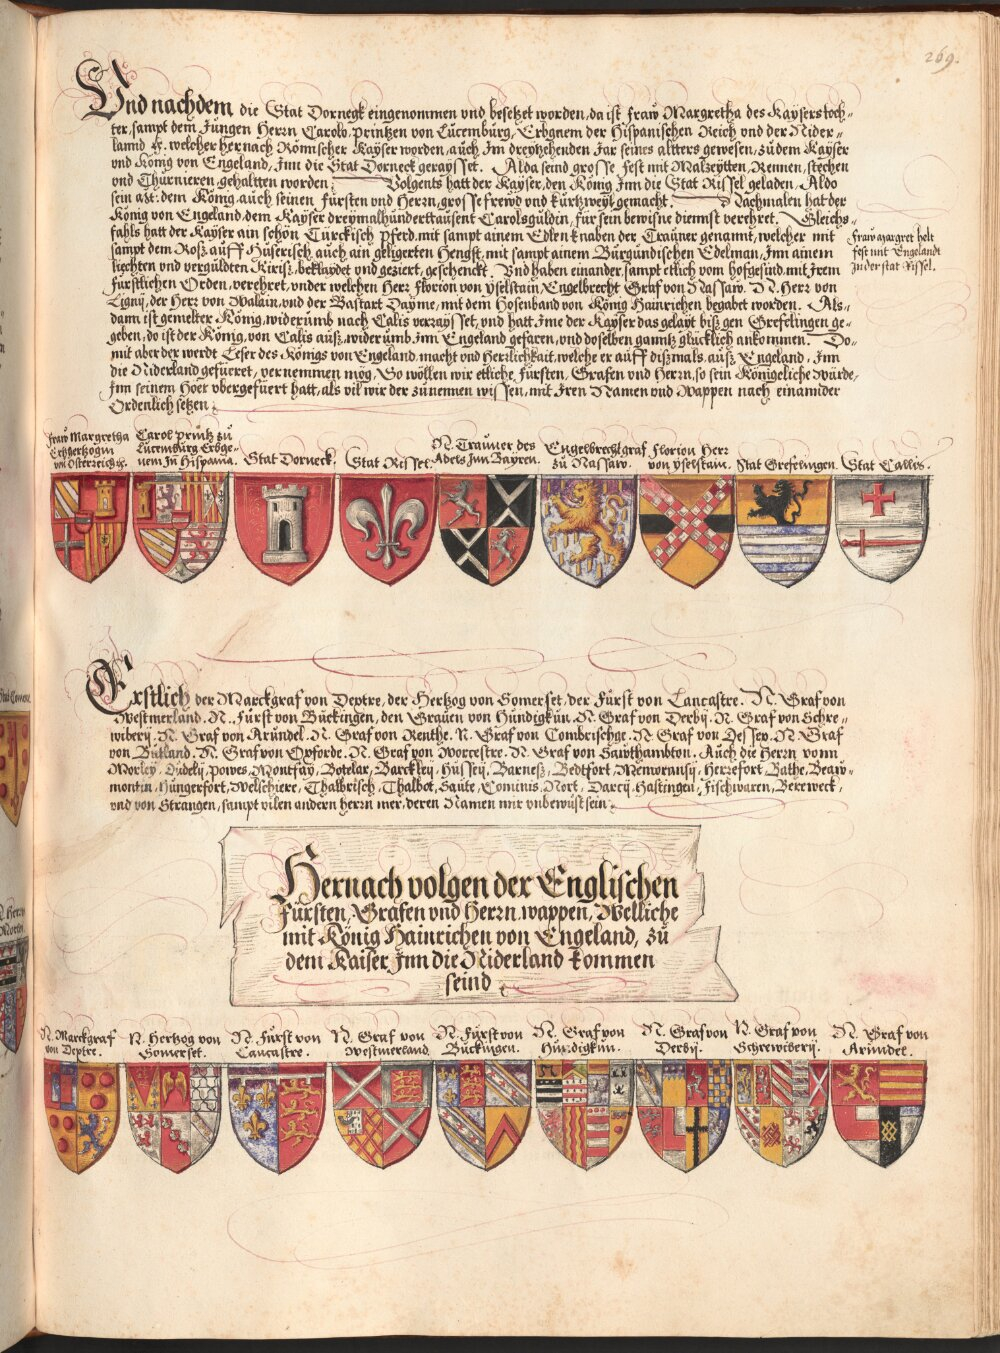 269.
Und nachdem die Stat Dorneck eingenommen und besetzet worden, da ist fraw Margretha des Kaysers toch-
ter, sampt dem Jungen Herrn Carolo, printzen von Lücemburg, Erbgnem der Hispanischen Reich und der Nider-
lannd &c. welcher hernach Römischer Kayser worden, auch Jm dreyzehenden Jar seines altters gewesen, zu dem Kayser
und König von Engeland, Jnn die Stat Dorneck geraysset. Alda seind grosse fest mit Malzeytten, Rennen, stechen
und Thurnieren, gehaltten worden. Volgents hatt der Kayser, den König Jnn die Stat Rissel geladen, Aldo
sein Mt: dem König, auch seinen fürsten und Herrn, grosse frewd und kurtzweyl gemacht. Nachmalen hat der
König von Engeland, dem Kayser dreymalhunderttausent Carolsguldin, für sein bewisne diennst verehret. Gleichs-
fahls hatt der Kayser ain schön Türckisch Pferd, mit sampt ainem Edlen knaben der Trauner genant, welcher mit
sampt dem Roß, auff Huserisch, auch ain geligerten Hengst, mit sampt ainem Burgundischen Edelman, Jnn ainem
liechten und verguldten Kiriß, beklaydet und geziert, geschenckt. Und haben einander, sampt ettlich vom Hofgesind, mit Jrem
fürstlichen Orden, verehret, under welchen Herr Florion von yselstain, Engelbrecht Graf von Nassaw. N. Herr von
Ligny, der Herr von Walain, und der Bastart Dayme, mit dem Hosenband von König Hainrichen begabet worden. Als-
dann ist gemelter König, widerumb nach Calis verraysset, und hatt Jme der Kayser das gelayt biß gen Grefelingen ge-
geben, do ist der König, von Calis auß, widerumb Jnn Engeland gefaren, und doselben ganntz glücklich ankommen. Do-
mit aber der werdt Leser des Königs von Engeland, macht und Herrlichkait, welche er auff dißmals auß Engeland, Jnn
die Niderland gefueret, vernemmen mög, So wöllen wir ettliche fürsten, Grafen und Herrn, so sein Königeliche Würde,
Jnn seinem Hoer ubergefuert hatt, als vil wir der zu nennen wissen, mit Jren Namen und Wappen nach einannder
Ordenlich setzen.
fraw Margret helt
fest mit Engelandt
Jn der stat Rissel.
fraw Margretha
Ertzhertzogin
von Österreich &c.
Carol printz zu
Lucemburg Erbge-
nem Jn Hispania.
Stat Dorneck.
Stat Rissel.
N. Trauner des
Adels Jnn Bayren.
Engelbrecht graf
zu Nassaw.
Florion Herr
von yselstain.
Stat Grefelingen.
Stat Callis.
Erstlich der Marckgraf von Deptre, der Hertzog von Somerset, der fürst von Lancastre. N. Graf von
Westmerland. N. Fürst von Bückingen, den Grauen von Hündigkun. N. Graf von Derby. N. Graf von Schre-
wibery. N. Graf von Aründel. N. Graf von Kenthe. N. Graf von Combrischge. N. Graf von Dessex. N. Graf
von Rutland. N. Graf von Oxforde. N. Graf von Worcestre. N. Graf von Sawthambton. Auch die Herrn vonn
Morley, Dudely, Powes, Montfay, Botelar, Barckley, Hussey, Barneß, Bedtfort, Memoransy, Herrefort, Bathe, Beaw-
montin, Hungerfort, Welschiere, Thalbrisch, Thalbot, Saute, Cominis, Nort, Darcy, Hastingen, Fischwaren, Bereweck,
und von Strangen, sampt vilen andern herrn mer, deren Namen mir unbewüst sein.
Hernach volgen der Englischen
fürsten, Grafen und Herrn, wappen, Welliche
mit König Hainrichen von Engeland, zu
dem Kaiser Jnn die Niderland kommen
seind
N. Marckgraf
von Deptre.
N. Hertzog von
Somerset.
N. Fürst von
Lancastre.
N. Graf von
Westmerland
N. Fürst von
Bückingen.
N. Graf von
Hündigkün.
N. Graf von
Derby.
N. Graf von
Schrewibery.
N. Graf von
Aründel.